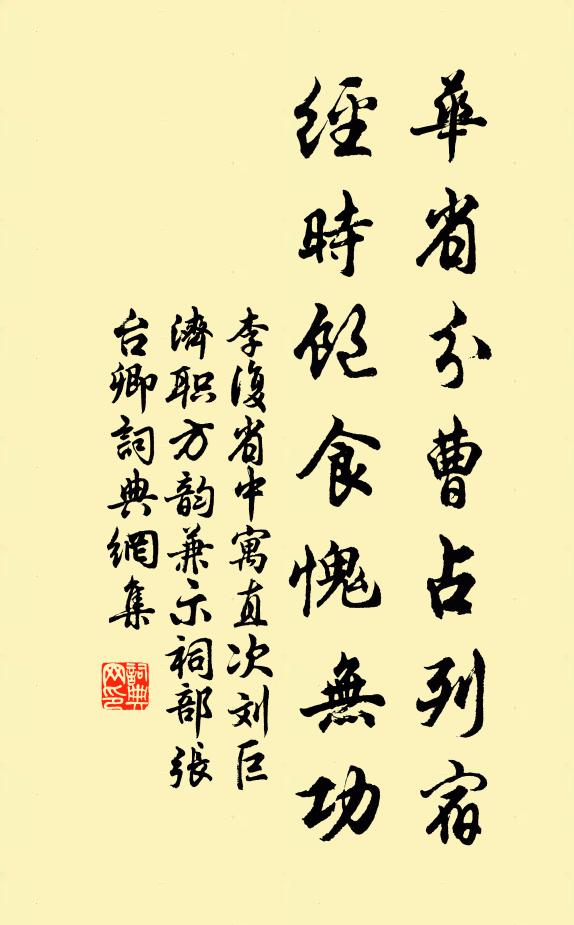 華省分曹占列宿
經時飽食愧無功
李復省中寓直次刘巨
濟职方韵兼示祠部張
台卿詞典網集
詞典网印